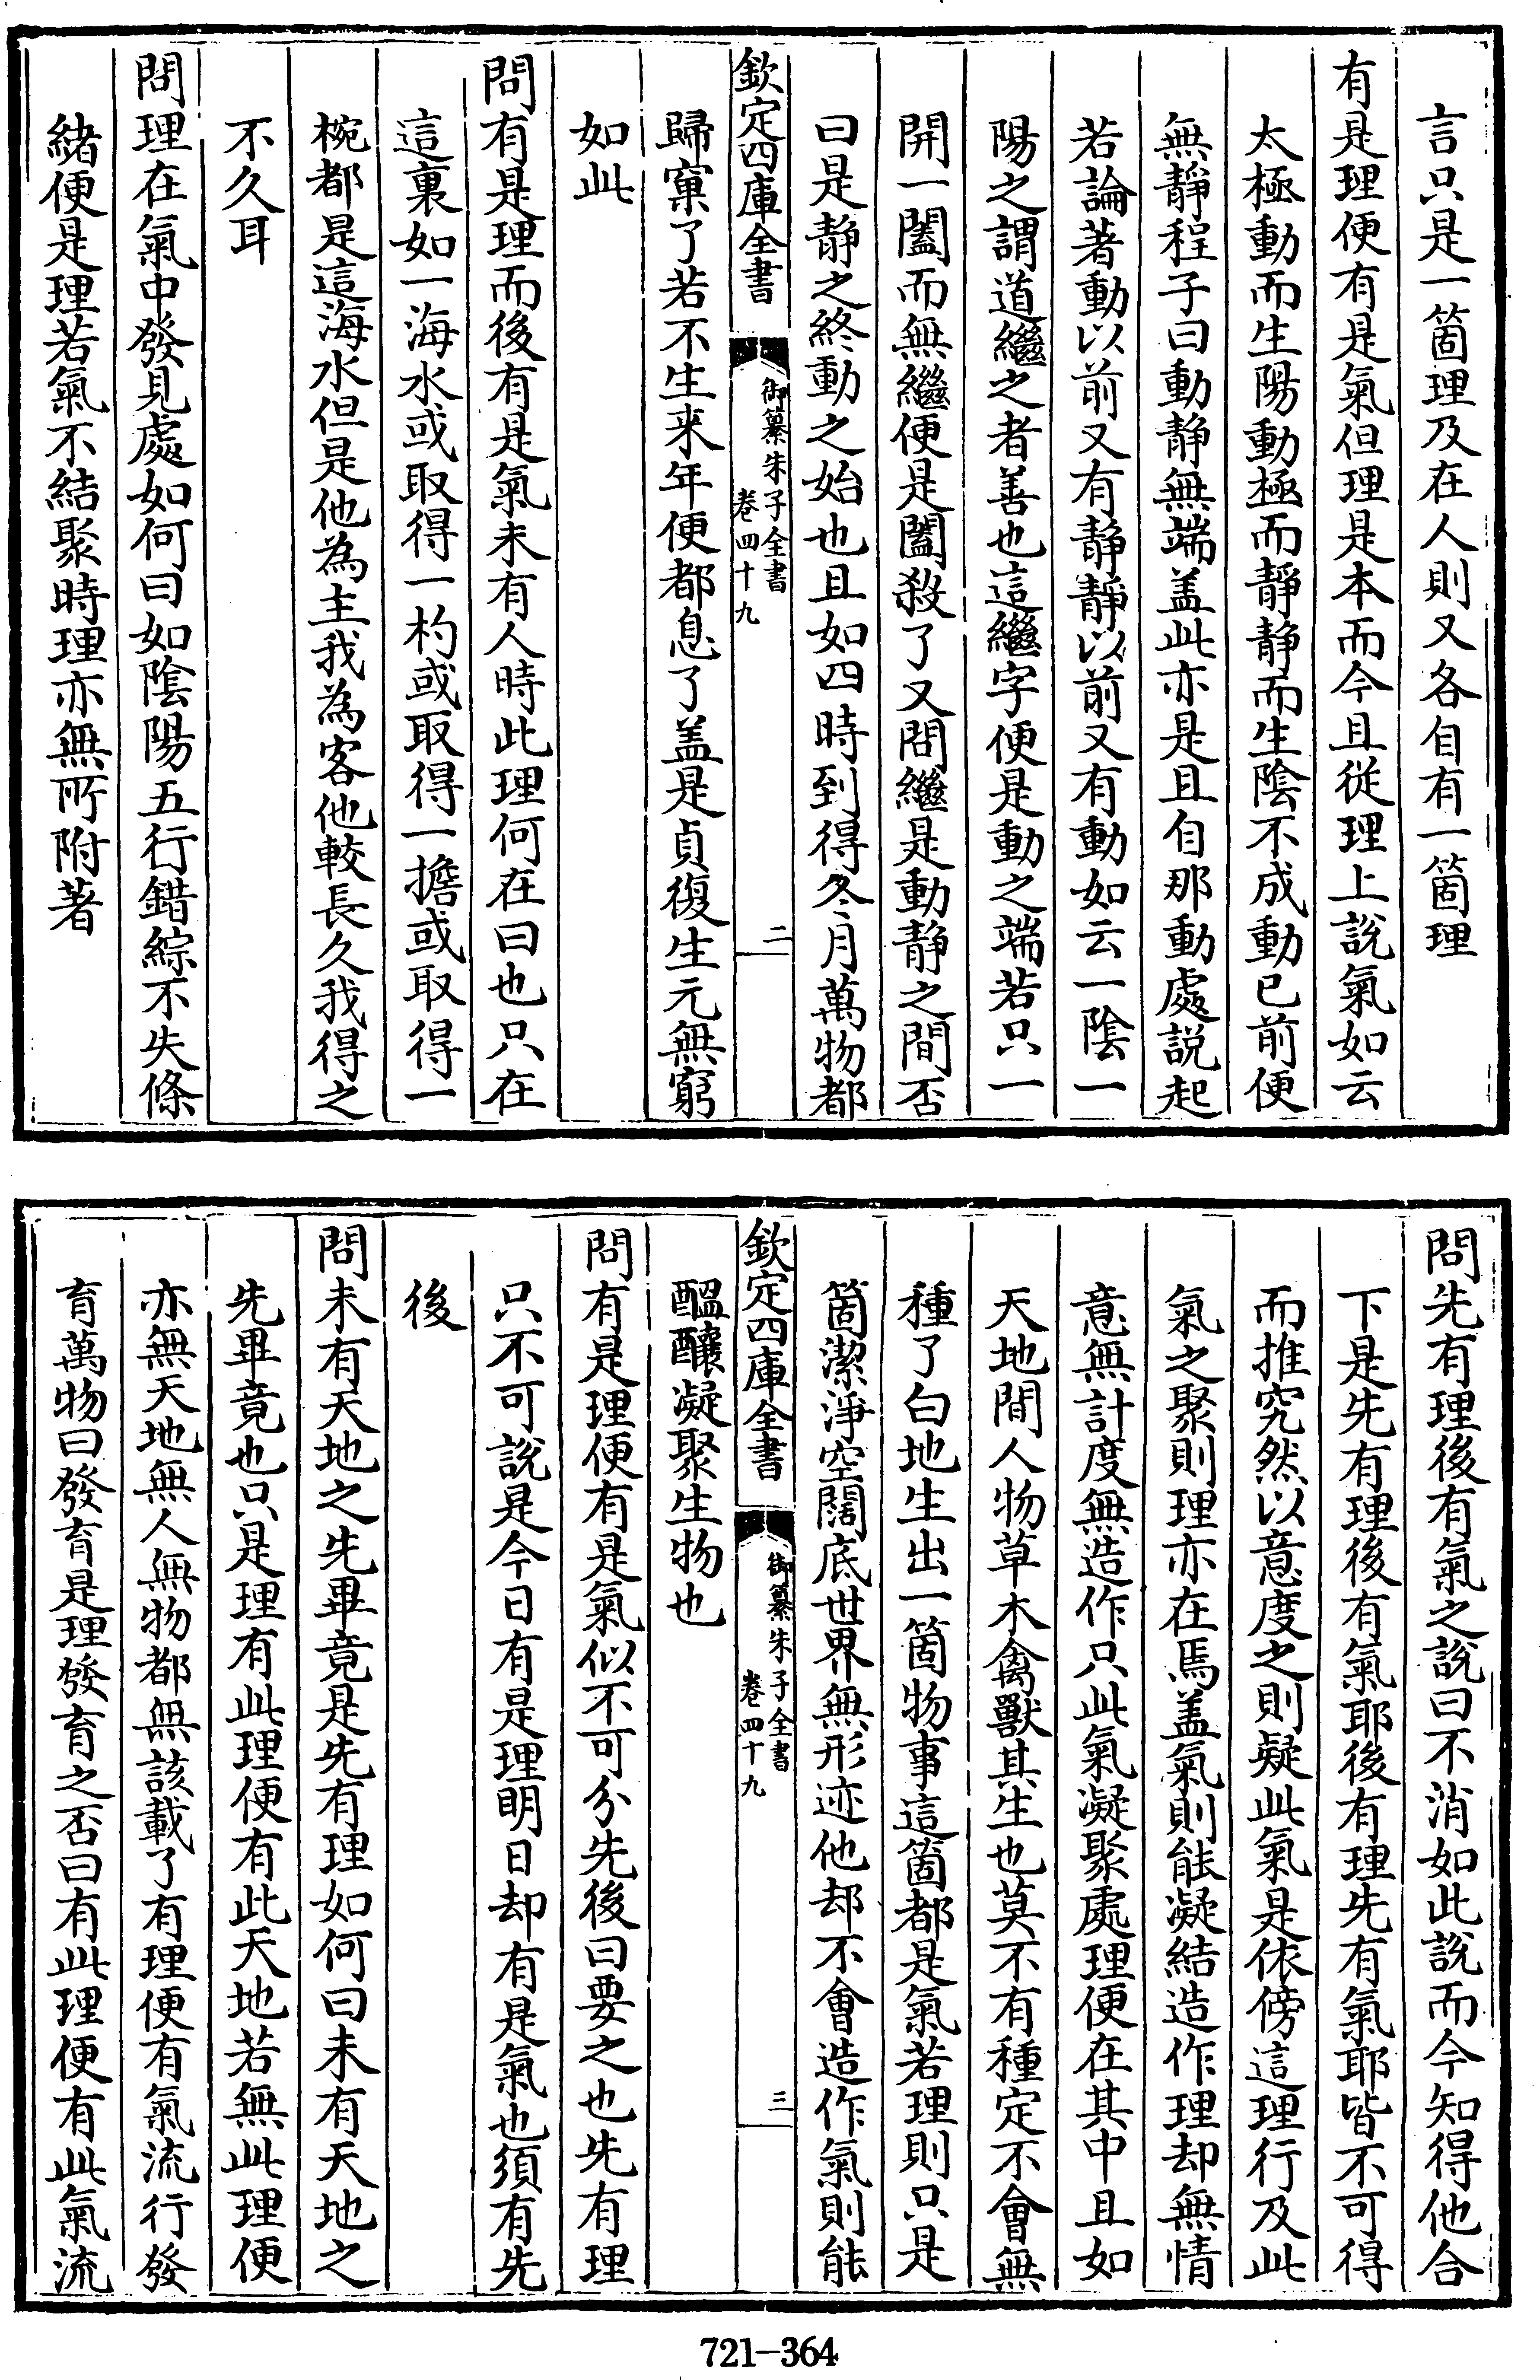 言只是一箇理及在人則又各自有一箇理
有是理便有是氣但理是本而今且從理上說氣如云
太極動而生陽動極而靜靜而生陰不成動已前便
無靜程子曰動靜無端盖此亦是且自那動處説起
若論著動以前又有靜靜以前又有動如云一陰一
陽之謂道繼之者善也這繼字便是動之端若只一
開一闔而無繼便是闔殺了又問繼是動靜之間否
曰是靜之終動之始也且如四時到得冬月萬物都
欽定四庫全書
御纂朱子全書
卷四十九
二
歸窠了若不生来年便都息了盖是貞復生元無窮
如此
問有是理而後有是氣未有人時此理何在曰也只在
這裏如一海水或取得一杓或取得一擔或取得一
椀都是這海水但是他為主我為客他較長久我得之
不久耳
問理在氣中發見處如何曰如陰陽五行錯綜不失條
緒便是理若氣不結聚時理亦無所附著
問先有理後有氣之說曰不消如此說而今知得他合
下是先有理後有氣耶後有理先有氣耶皆不可得
而推究然以意度之則疑此氣是依傍這理行及此
氣之聚則理亦在焉盖氣則能凝結造作理却無情
意無計度無造作只此氣凝聚處理便在其中且如
天地間人物草木禽獸其生也莫不有種定不會無
種了白地生出一箇物事這箇都是氣若理則只是
箇潔淨空闊底世界無形迹他却不會造作氣則能
欽定四庫全書
御纂朱子全書
卷四十九
三
醖釀凝聚生物也
問有是理便有是氣似不可分先後曰要之也先有理
只不可說是今日有是理明日却有是氣也須有先
後
問未有天地之先畢竟是先有理如何曰未有天地之
先畢竟也只是理有此理便有此天地若無此理便
亦無天地無人無物都無該載了有理便有氣流行發
育萬物曰發育是理發育之否曰有此理便有此氣流
721-364